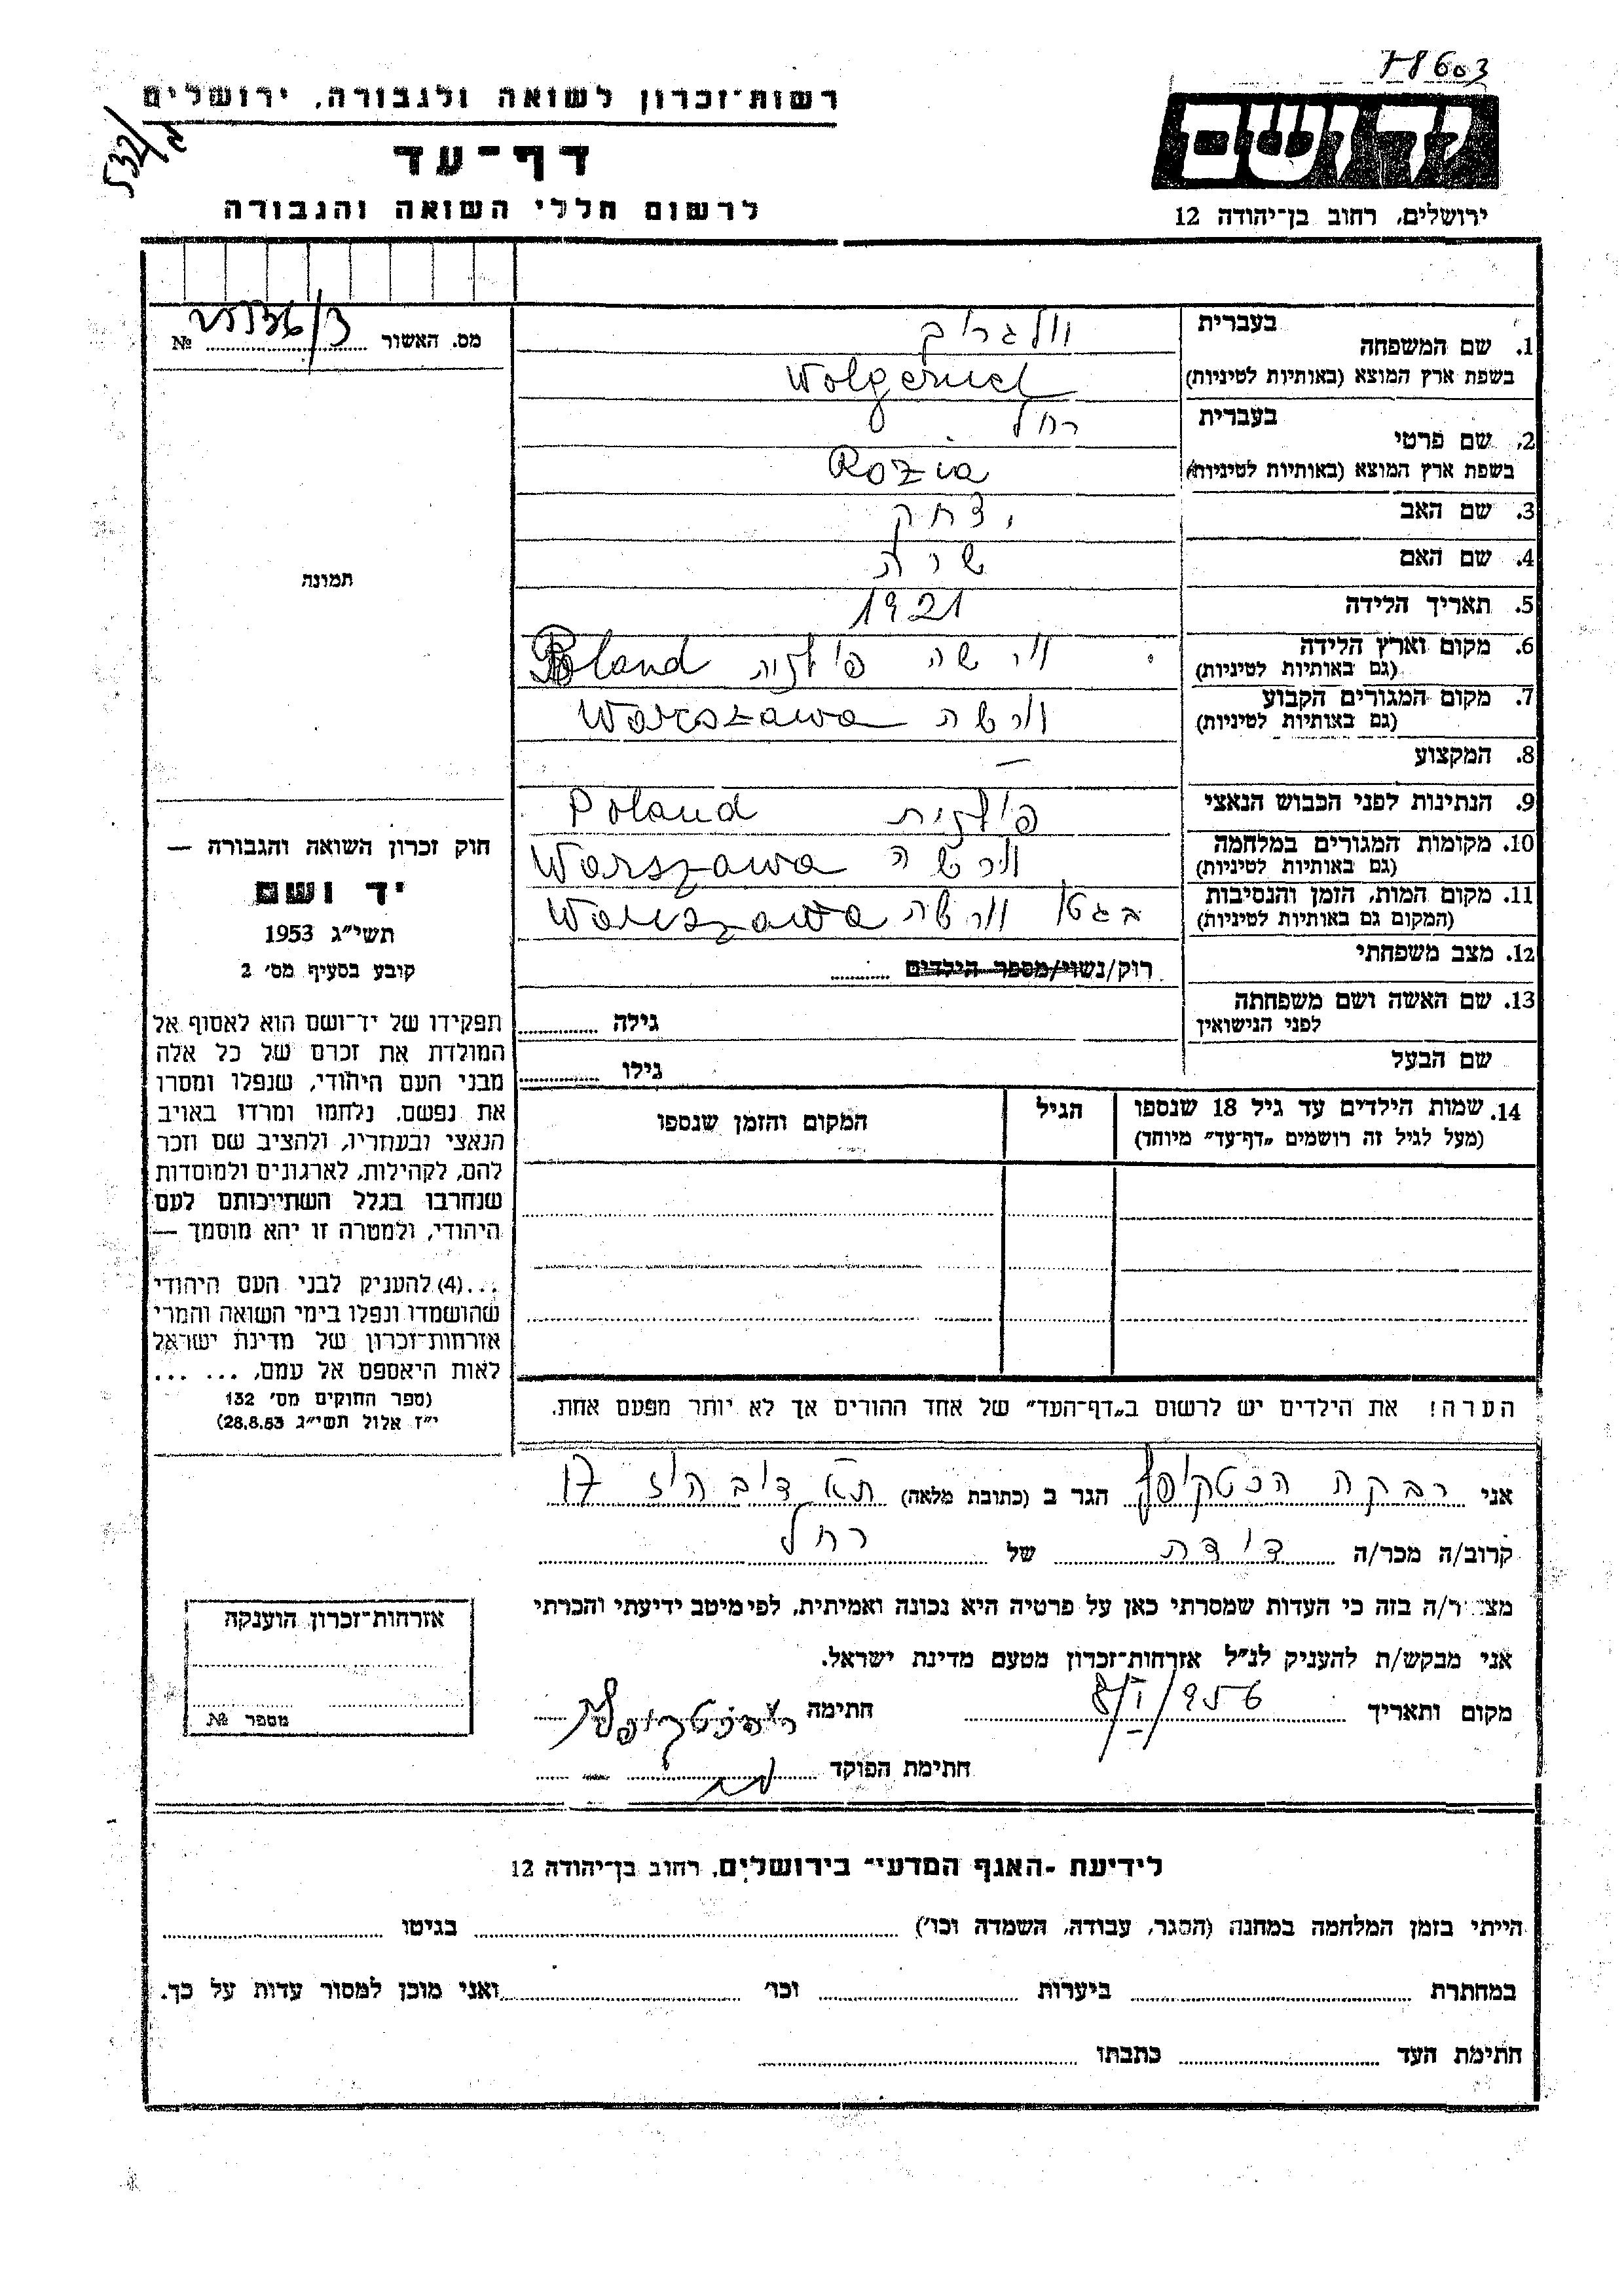 78603
רשות-זכרון לשואה ולגבורה, ירושלים
דף-עד
לרשום חללי השואה והגבורה
532/
יד ושם
ירושלים, רחוב בן-יהודה 12
מס. האשור №
1. שם המשפחה
בעברית
בשפת ארץ המוצא (באותיות לטיניות)
2. שם פרטי
בעברית רחל
בשפת ארץ המוצא (באותיות לטיניות) Rozia
3. שם האב יצחק
4. שם האם שרה
5. תאריך הלידה 1921
6. מקום וארץ הלידה ורשה פולניה Poland
(גם באותיות לטיניות)
7. מקום המגורים הקבוע ורשה Warszawa
(גם באותיות לטיניות)
8. המקצוע —
9. הנתינות לפני הכבוש הנאצי פולנית Poland
10. מקומות המגורים במלחמה ורשה Warszawa
(גם באותיות לטיניות)
11. מקום המות, הזמן והנסיבות בגטו ורשה Warszawa
(המקום גם באותיות לטיניות)
12. מצב משפחתי רוק/נשוי/מספר הילדים
13. שם האשה ושם משפחתה
לפני הנישואין גילה
שם הבעל גילו
14. שמות הילדים עד גיל 18 שנספו הגיל המקום והזמן שנספו
(מעל לגיל זה רושמים „דף-עד" מיוחד)
הערה! את הילדים יש לרשום ב„דף-העד" של אחד ההורים אך לא יותר מפעם אחת.
תמונה
חוק זכרון השואה והגבורה —
יד ושם
תשי"ג 1953
קובע בסעיף מס' 2
תפקידו של יד-ושם הוא לאסוף אל
המולדת את זכרם של כל אלה
מבני העם היהודי, שנפלו ומסרו
את נפשם, נלחמו ומרדו באויב
הנאצי ובעוזריו, ולהציב שם וזכר
להם, לקהילות, לארגונים ולמוסדות
שנחרבו בגלל השתייכותם לעם
היהודי, ולמטרה זו יהא מוסמך —
...(4) להעניק לבני העם היהודי
שהושמדו ונפלו בימי השואה והמרי
אזרחות-זכרון של מדינת ישראל
לאות היאספם אל עמם, ... ...
(ספר החוקים מס' 132
י"ז אלול תשי"ג 28.8.53)
אני רבקה הגר ב (כתובת מלאה) ת"א 17
קרוב/ה מכר/ה דודת של רחל
מצהיר/ה בזה כי העדות שמסרתי כאן על פרטיה היא נכונה ואמיתית, לפי מיטב ידיעתי והכרתי
אני מבקש/ת להעניק לנ"ל אזרחות-זכרון מטעם מדינת ישראל.
מקום ותאריך 8/I/956 חתימה
חתימת הפוקד
אזרחות-זכרון הוענקה
מספר №
לידיעת -האגף המדעי- בירושלים, רחוב בן-יהודה 12
הייתי בזמן המלחמה במחנה (הסגר, עבודה, השמדה וכו') בגיטו
במחתרת ביערות וכו' ואני מוכן למסור עדות על כך.
חתימת העד כתבתו